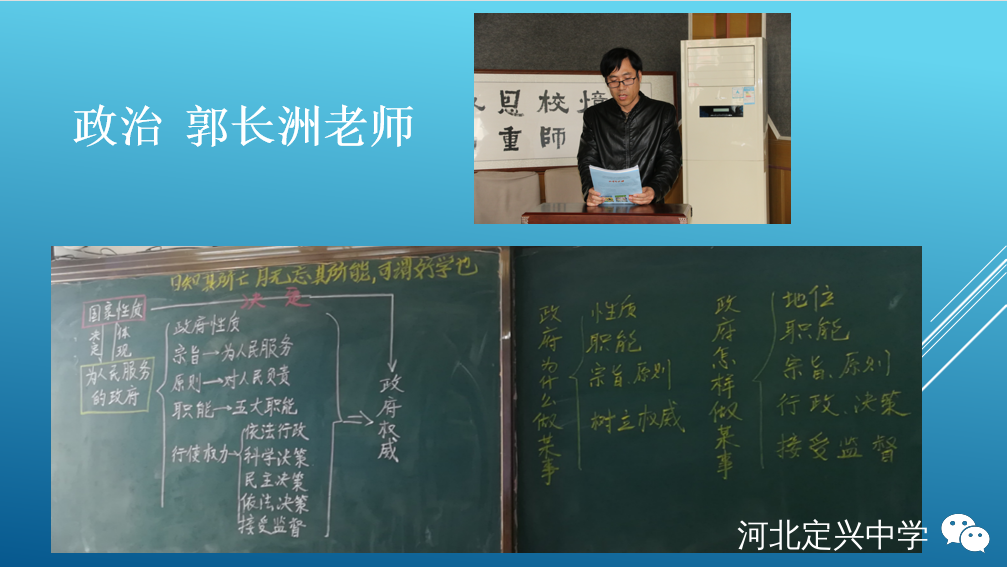 政治 郭长洲老师
恩校境
重師
日知其所亡,月无忘其所能,可谓好学也
决定
国家性质
决定
体现
为人民服务
的政府
政府性质
宗旨→为人民服务
原则→对人民负责
职能→五大职能
行使权力
依法行政
科学决策
民主决策
依法决策
接受监督
政府权威
政府为什么做某事
性质
职能
宗旨、原则
树立权威
政府怎样做某事
地位
职能
宗旨、原则
行政、决策
接受监督
河北定兴中学